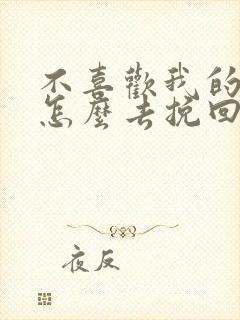 不喜歡我的
怎麼去挽回
夜反